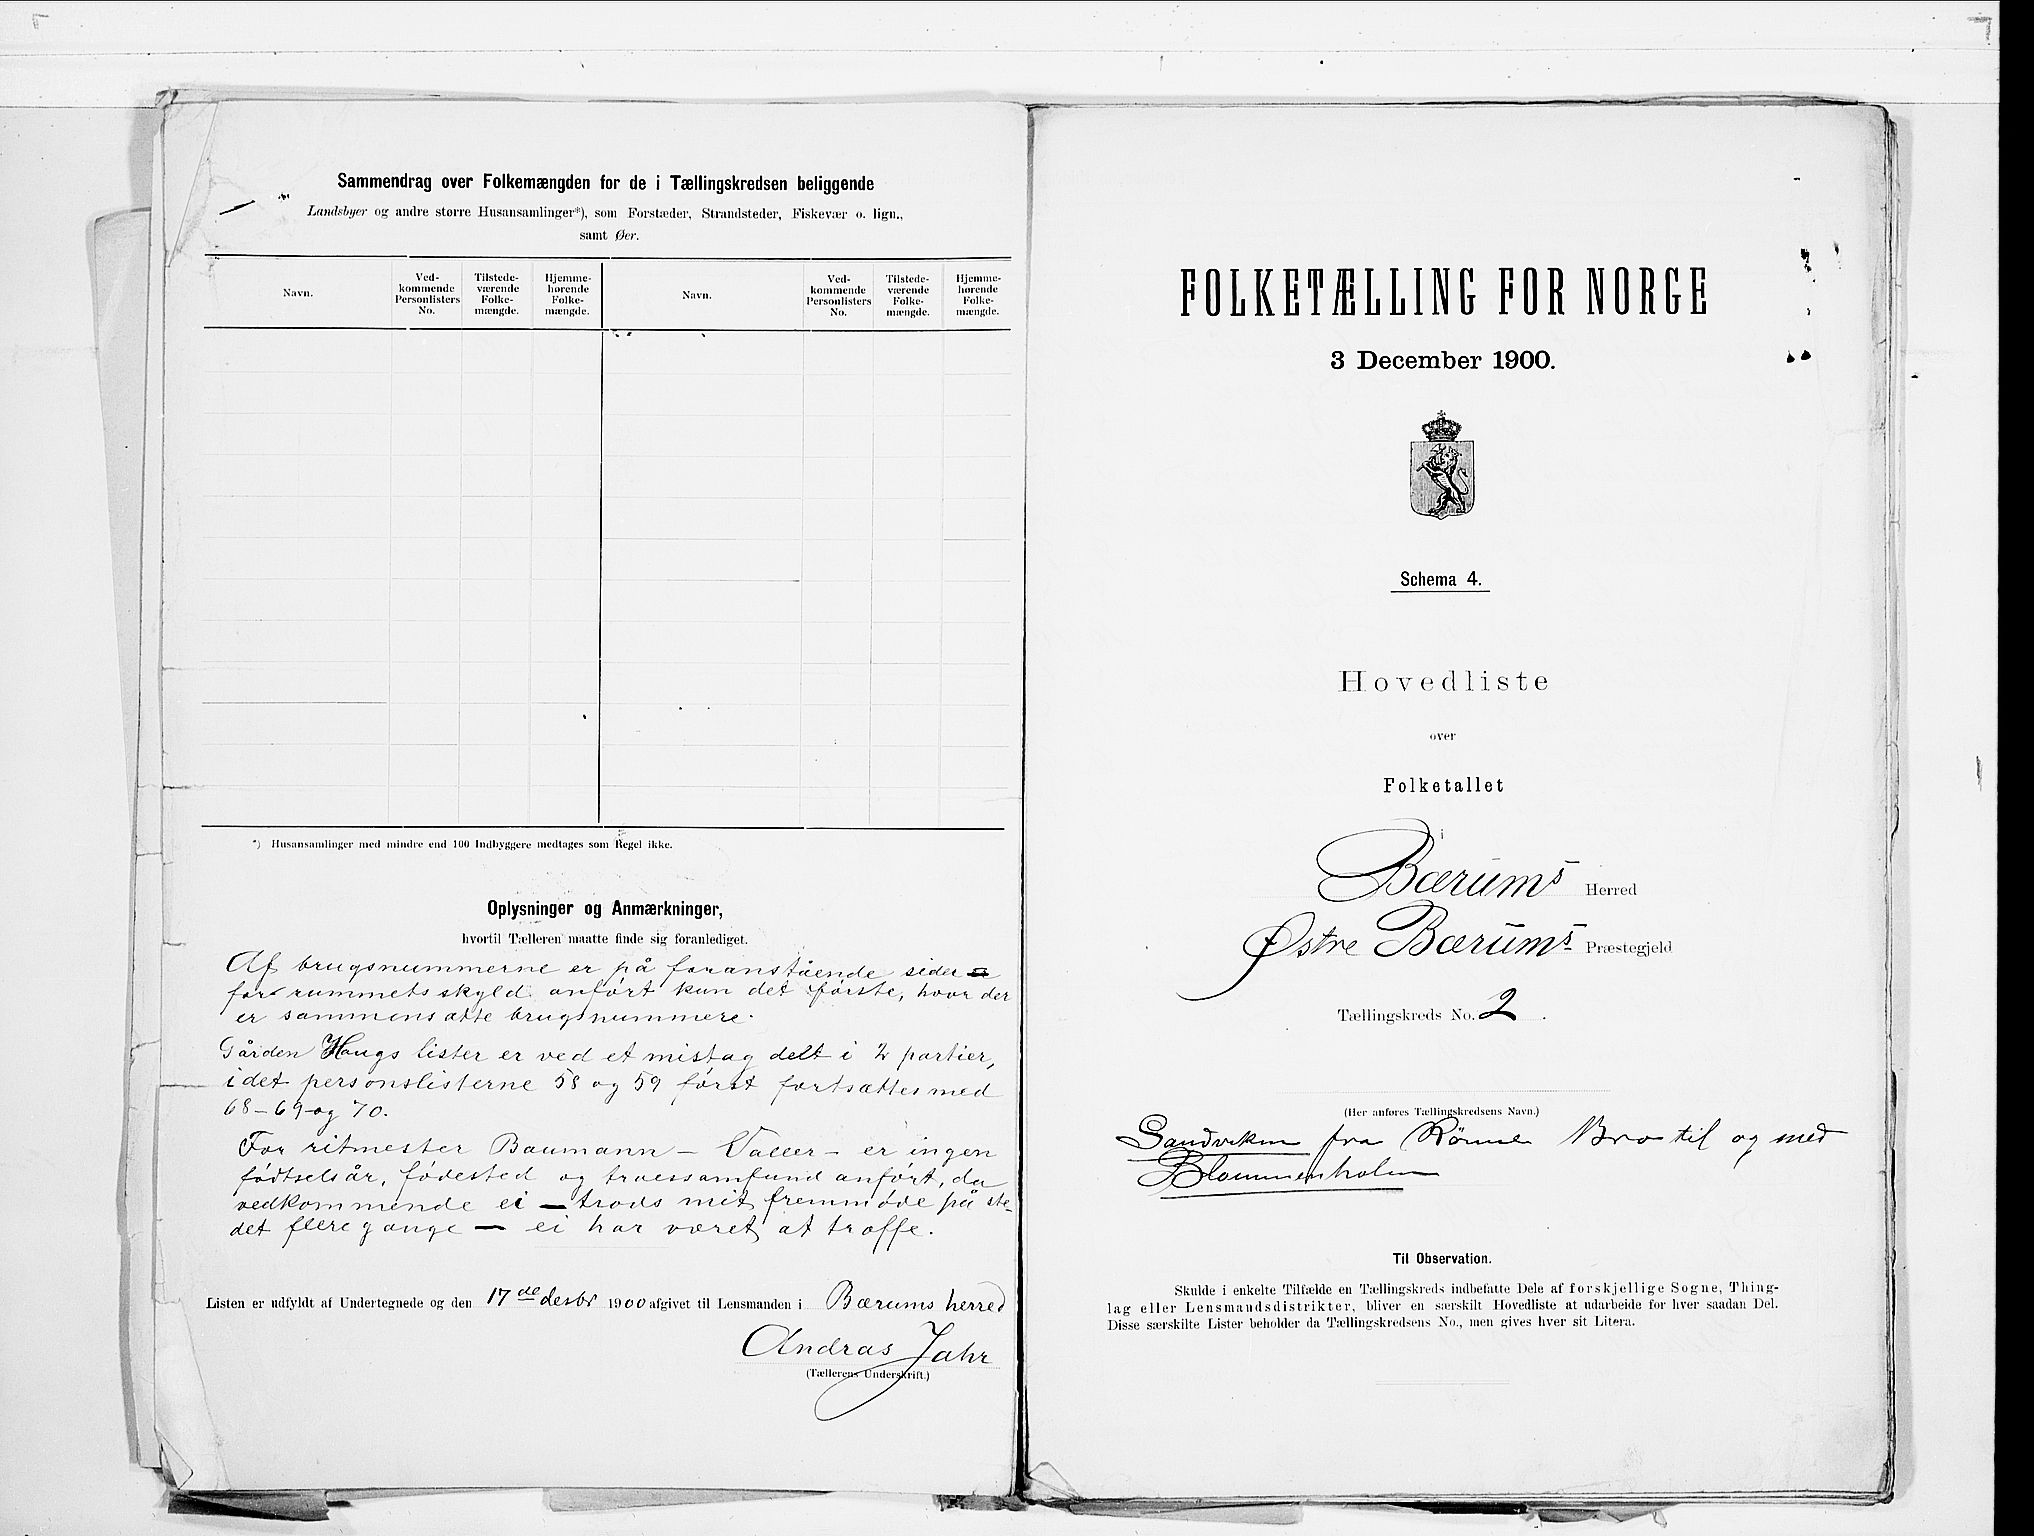 Sammendrag over Folkemængden for de i Tællingskredsen beliggende
Landsbyer og andre større Husansamlinger*), som Forstæder, Strandsteder, Fiskevær o. lign.,
samt Øer.
Navn.
Ved-
kommende
Personlisters
No.
Tilstede-
værende
Folke-
mængde.
Hjemme-
hørende
Folke-
mængde.
Navn.
Ved-
kommende
Personlisters
No.
Tilstede-
værende
Folke-
mængde.
Hjemme-
hørende
Folke-
mængde.
*) Husansamlinger med mindre end 100 Indbyggere medtages som Regel ikke.
Oplysninger og Anmærkninger,
hvortil Tælleren maatte finde sig foranlediget.
Af brugsnummerne er på foranstående sider
for rummets skyld anført kun det første, hvor der
er sammensatte brugsnummere.
Gården Haugs lister er ved et mistag delt i 2 partier,
idet personslisterne 58 og 59 først fortsættes med
68-69-og 70.
For ritmester Baumann - Valler - er ingen
fødtselsår, fødested og troessamfund anført, da
vedkommende ei - trods mit fremmøde på ste-
det flere gange - ei har været at træffe.
Listen er udfyldt af Undertegnede og den 17de desbr 1900 afgivet til Lensmanden i Bærums herred
Andras Jahr
(Tællerens Underskrift.)
FOLKETÆLLING FOR NORGE
3 December 1900.
Schema 4.
Hovedliste
over
Folketallet
i
Bærums Herred
Østre Bærums Præstegjeld
Tællingskreds No. 2.
(Her anføres Tællingskredsens Navn.)
Sandviken fra Rønne Bro til og med
Blommenholm
Til Observation.
Skulde i enkelte Tilfælde en Tællingskreds indbefatte Dele af forskjellige Sogne, Thing-
lag eller Lensmandsdistrikter, bliver en særskilt Hovedliste at udarbeide for hver saadan Del.
Disse særskilte Lister beholder da Tællingskredsens No., men gives hver sit Litera.